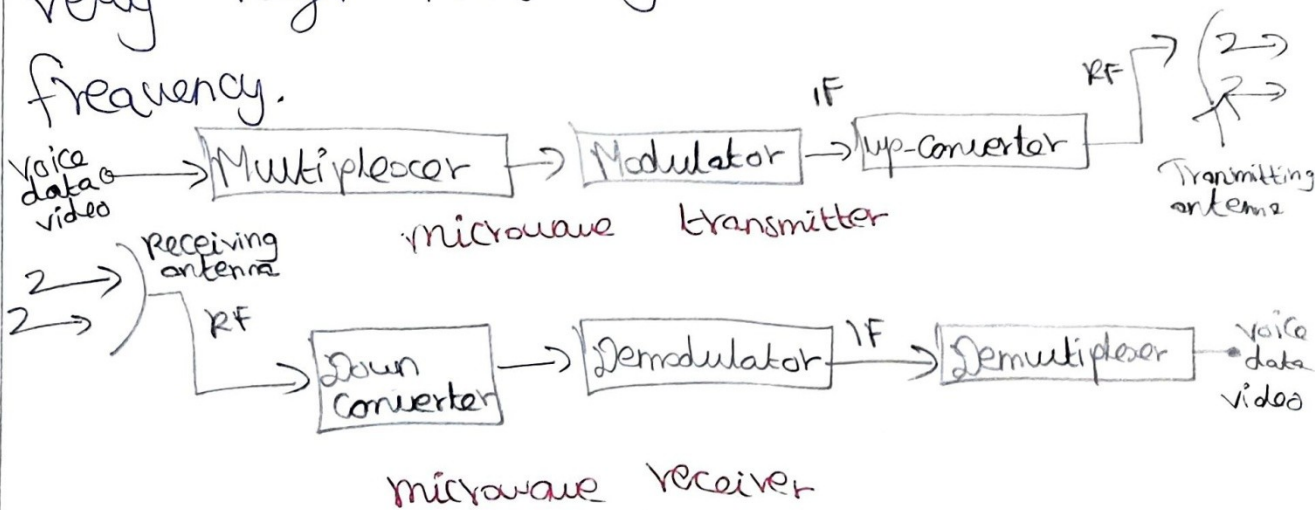 frequency.
voice
data
video
Multiplexer
Modulator
IF
up-converter
RF
Tranmitting
antenna
microwave transmitter
Receiving
antenna
RF
Down
converter
Demodulator
IF
Demultiplexer
voice
data
video
microwave receiver